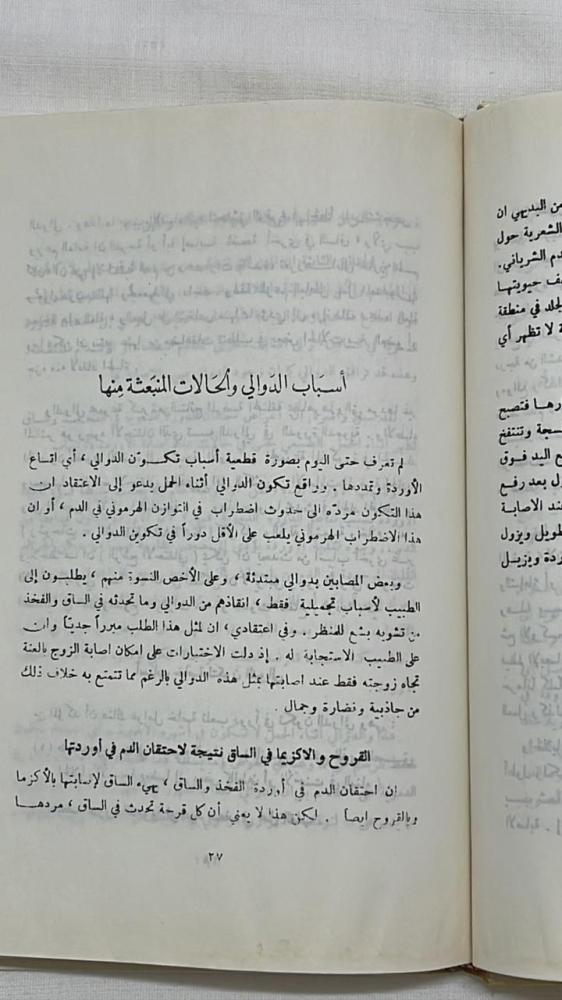 أسباب الدوالي والحالات المنبعثة منها
لم تعرف حتى اليوم بصورة قطعية أسباب تكون الدوالي ، أي اتساع
الأوردة وتمددها . وواقع تكون الدوالي أثناء الحمل يدعو إلى الاعتقاد ان
هذا التكون مردّه الى حدوث اضطراب في التوازن الهرموني في الدم ، أو ان
هذا الاضطراب الهرموني يلعب على الأقل دوراً في تكوين الدوالي .
وبعض المصابين بدوالي مبتدئة ، وعلى الأخص النسوة منهم ، يطلبون إلى
الطبيب لأسباب تجميلية فقط ، انقاذهم من الدوالي وما تحدثه في الساق والفخذ
من تشويه بشع للمنظر . وفي اعتقادي ، ان لمثل هذا الطلب مبرراً جدياً وان
على الطبيب الاستجابة له . إذ دلت الاختبارات على امكان اصابة الزوج بالعنة
تجاه زوجته فقط عند اصابتها بمثل هذه الدوالي بالرغم مما تتمتع به خلاف ذلك
من جاذبية ونضارة وجمال .
القروح والاكزيما في الساق نتيجة لاحتقان الدم في أوردتها
إن احتقان الدم في أوردة الفخذ والساق ، يهيء الساق لإصابتها بالأكزما
وبالقروح ايضاً . لكن هذا لا يعني أن كل قرحة تحدث في الساق ، مردهــا
٢٧
من البديهي ان
الشعرية حول
دم الشرياني.
حيويتها
لجلد في منطقة
لا تظهر أي
فتصبح
وتنتفخ
ع اليد فوق
بعد رفع
عند الاصابة
طويل ويزول
ويزيل